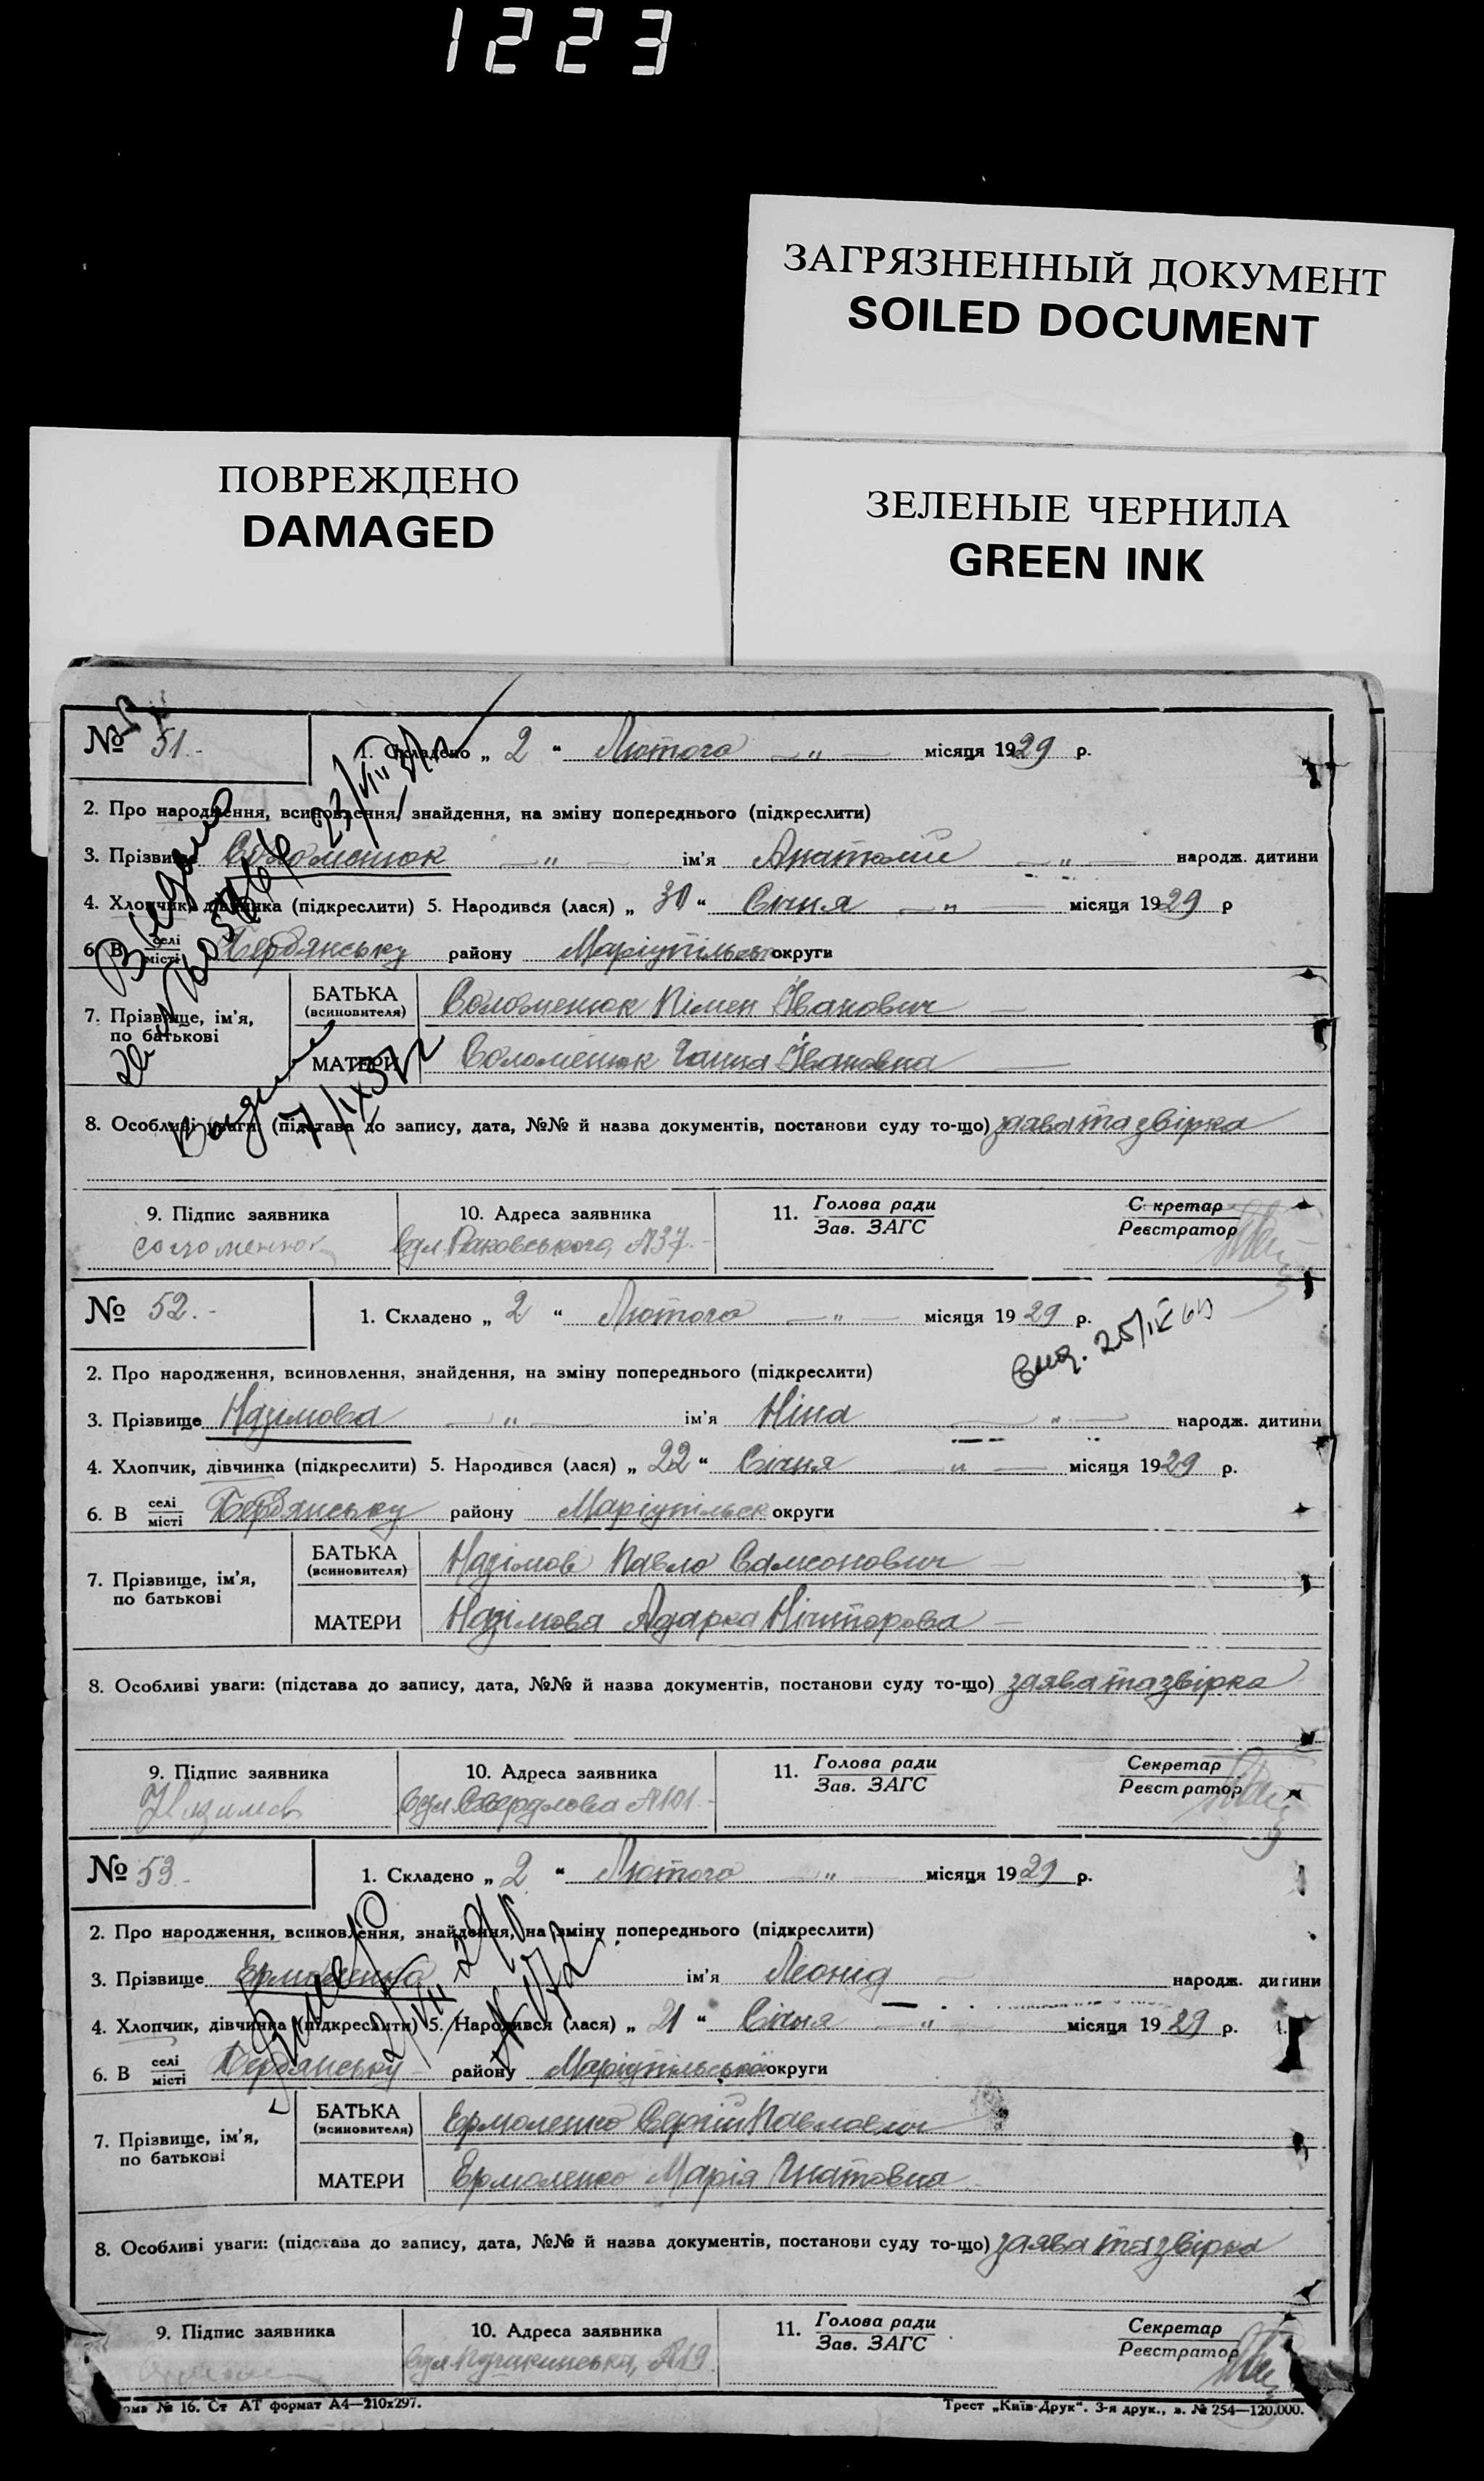 1223
ЗАГРЯЗНЕННЫЙ ДОКУМЕНТ
SOILED DOCUMENT
ПОВРЕЖДЕНО
DAMAGED
ЗЕЛЕНЫЕ ЧЕРНИЛА
GREEN INK
№ 51.-
1. Складено „ 2 “ Лютого —„— місяця 1929 р.
2. Про народження, всиновлення, знайдення, на зміну попереднього (підкреслити)
3. Прізвище Соломенюк —„— ім'я Анатолій —„— народж. дитини
4. Хлопчик, дівчинка (підкреслити) 5. Народився (лася) „ 30 “ Січня —„— місяця 1929 р
6. В селі/місті Бердянську району Маріупільськ округи
7. Прізвище, ім'я, по батькові
БАТЬКА (всиновителя) Соломенюк Пімен Іванович —
МАТЕРИ Соломенюк Ганна Івановна —
8. Особливі уваги: (підстава до запису, дата, №№ й назва документів, постанови суду то-що) заява та звірка
9. Підпис заявника
Соломенюк
10. Адреса заявника
вул. Раковського, №37.-
11. Голова ради
Зав. ЗАГС
С кретар
Реєстратор
№ 52.-
1. Складено „ 2 “ Лютого —„— місяця 1929 р.
вид. 25/IX
2. Про народження, всиновлення, знайдення, на зміну попереднього (підкреслити)
3. Прізвище Назімова —„— ім'я Ніна —„— народж. дитини
4. Хлопчик, дівчинка (підкреслити) 5. Народився (лася) „ 22 “ Січня —„— місяця 1929 р.
6. В селі/місті Бердянську району Маріупільськ округи
7. Прізвище, ім'я, по батькові
БАТЬКА (всиновителя) Назімов Павло Самсонович —
МАТЕРИ Назімова Одарка Нічипорова —
8. Особливі уваги: (підстава до запису, дата, №№ й назва документів, постанови суду то-що) заява та звірка
9. Підпис заявника
Назимов
10. Адреса заявника
вул. Свердлова №101.-
11. Голова ради
Зав. ЗАГС
Секретар
Реєстратор
№ 53.-
1. Складено „ 2 “ Лютого —„— місяця 1929 р.
2. Про народження, всиновлення, знайдення, на зміну попереднього (підкреслити)
3. Прізвище Ермоленко ім'я Леонід — народж. дитини
4. Хлопчик, дівчинка (підкреслити) 5. Народився (лася) „ 21 “ Січня —„— місяця 1929 р.
6. В селі/місті Бердянську району Маріупільської округи
7. Прізвище, ім'я, по батькові
БАТЬКА (всиновителя) Ермоленко Сергій Павлович
МАТЕРИ Ермоленко Марія Гнатовна
8. Особливі уваги: (підстава до запису, дата, №№ й назва документів, постанови суду то-що) заява та звірка
9. Підпис заявника
10. Адреса заявника
вул. Пушкинська, №19
11. Голова ради
Зав. ЗАГС
Секретар
Реєстратор
орма № 16. Ст АТ формат А4—210х297.
Трест „Київ-Друк“. 3-я друк., з. № 254—120.000.